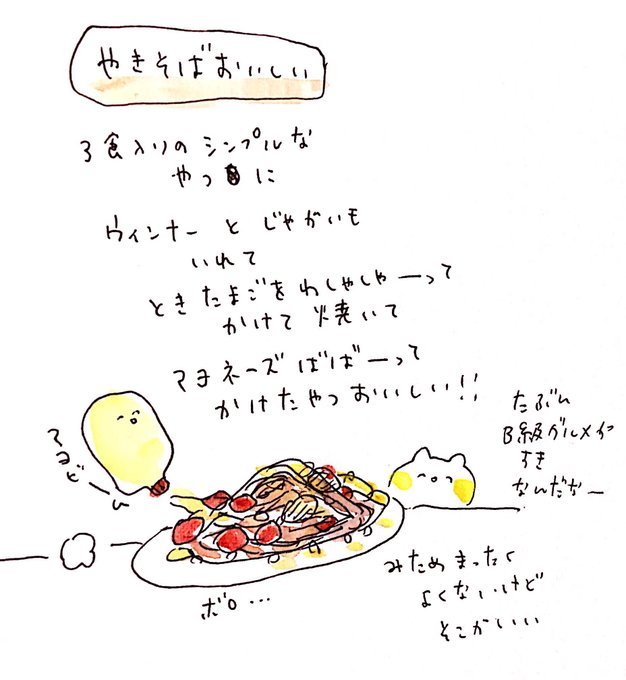 やきそばおいしい
3食入りのシンプルな
やつに
ウィンナーとじゃがいも
いれて
ときたまごをわしゃしゃーって
かけて焼いて
マヨネーズばばーって
かけたやつおいしい!!
たぶん
B級グルメが
すき
なんだなー
マヨどーん
ボロ...
みためまったく
よくないけど
そこがいい